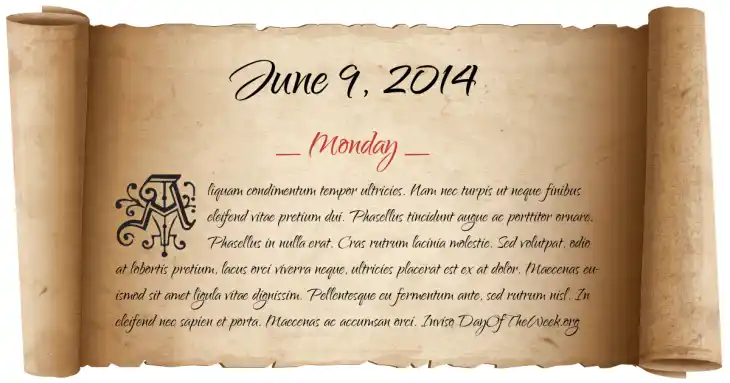 June 9, 2014
_ Monday _
Aliquam condimentum tempor ultricies. Nam nec turpis ut neque finibus
eleifend vitae pretium dui. Phasellus tincidunt augue ac porttitor ornare.
Phasellus in nulla erat. Cras rutrum lacinia molestie. Sed volutpat, odio
at lobortis pretium, lacus orci viverra neque, ultricies placerat est ex at dolor. Maecenas eu-
ismod sit amet ligula vitae dignissim. Pellentesque eu fermentum ante, sed rutrum nisl. In
eleifend nec sapien et porta. Maecenas ac accumsan orci. Inviso DayOfTheWeek.org